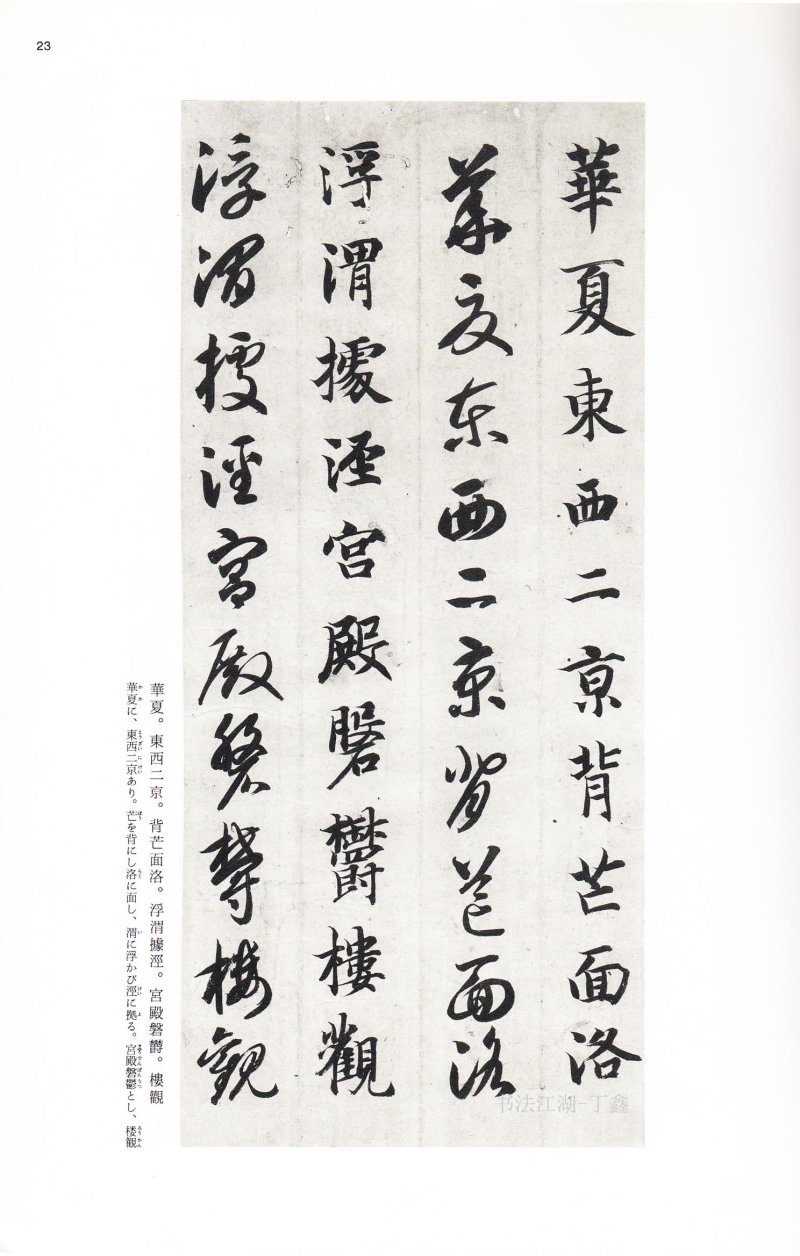 23
華夏東西二京背芒面洛
華夏東西二京背芒面洛
浮渭據涇宮殿磐鬱樓觀
浮渭據涇宮殿磐鬱樓觀
華夏。東西二京。背芒面洛。浮渭據涇。宮殿磐欝。樓觀
華夏に、東西二京あり。芒を背にし洛に面し、渭に浮かび涇に拠る。宮殿磐鬱とし、楼観
书法江湖-丁鑫